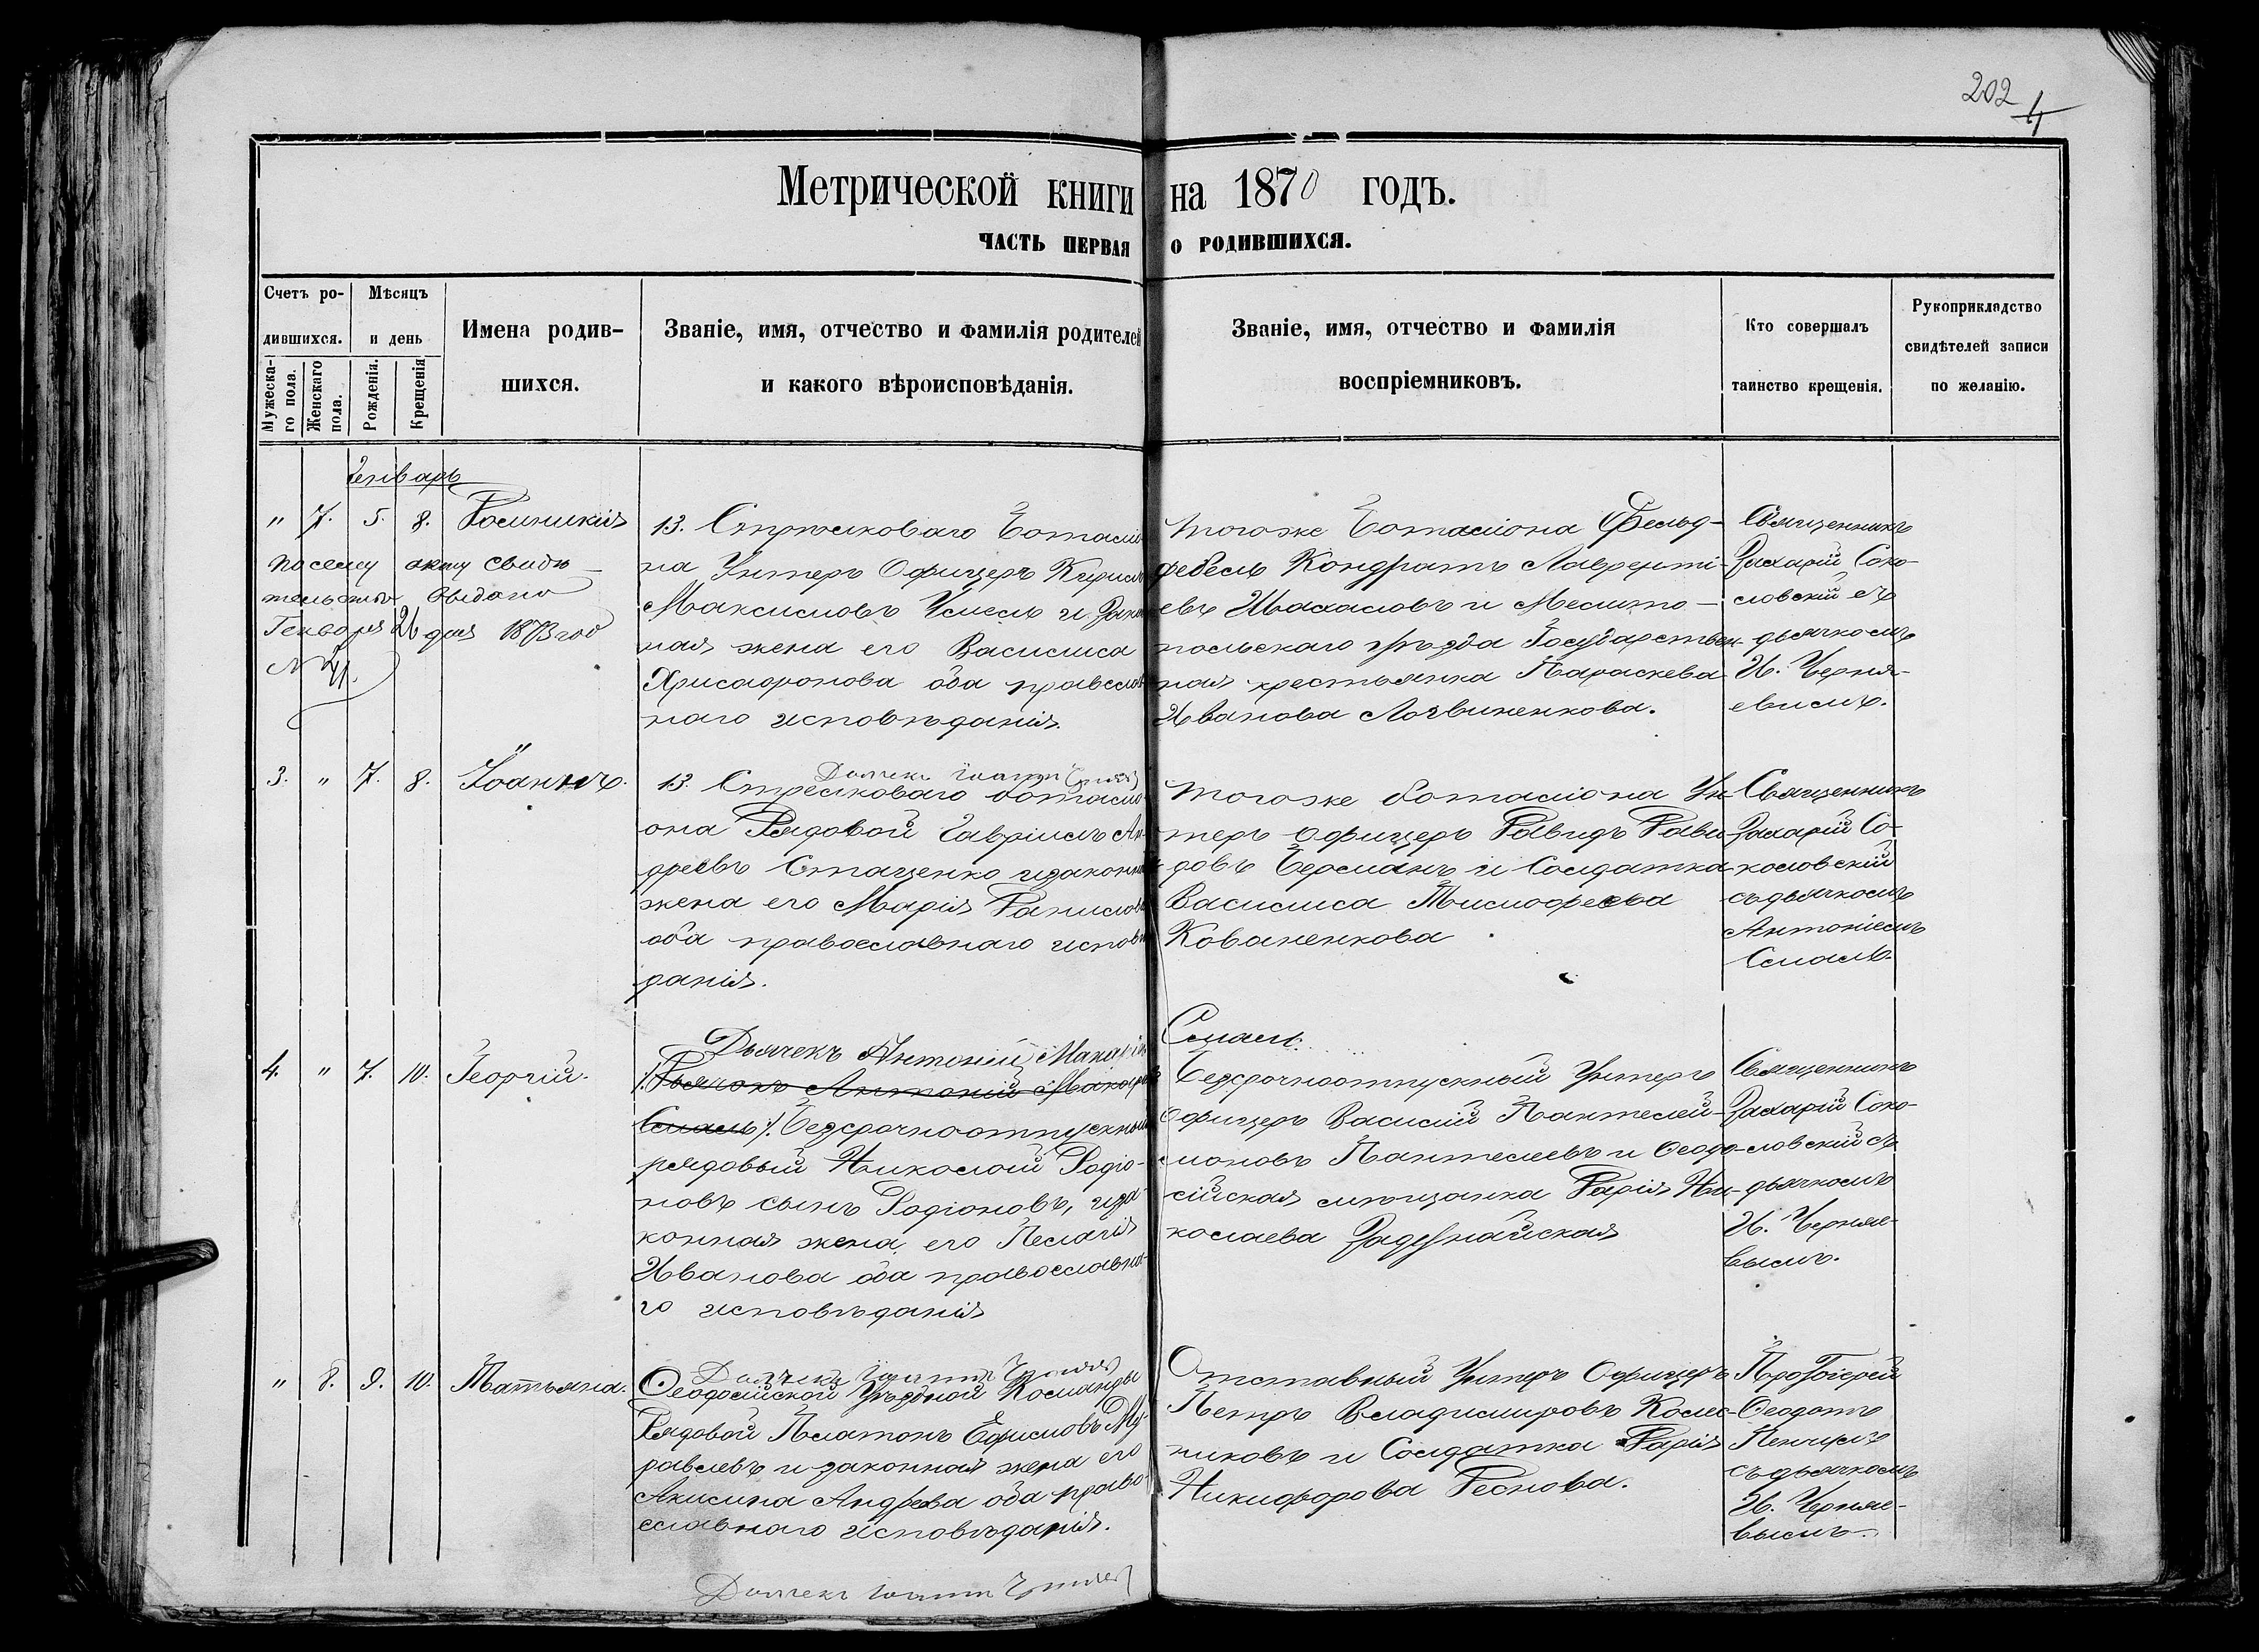 202
4
Метрической книги на 1870 годъ.
ЧАСТЬ ПЕРВАЯ О РОДИВШИХСЯ.
Счетъ ро-
дившихся.
Мужеска-
го пола.
Женскаго
пола.
Мѣсяцъ
и день
Рожденія.
Крещенія
Имена родив-
шихся.
Званіе, имя, отчество и фамилія родителей
и какого вѣроисповѣданія.
Званіе, имя, отчество и фамилія
воспріемниковъ.
Кто совершалъ
таинство крещенія.
Рукоприкладство
свидѣтелей записи
по желанію.
Генварь
" 7. 5. 8. Домникія
по сему акту свидѣ-
тельство выдано
Генваря 26 дня 1873 год
13. Стрѣлковаго Баталіо
на Унтеръ Офицеръ Кирилъ
Максимовъ и Закон
ная жена его Василиса
Хрисанфонова оба православ
наго исповѣданія.
тогоже Баталіона Фельд-
фебель Кондратъ Лаврентi-
евъ Шахаловъ и Мелито-
польскаго уѣзда Государствен-
ная крестьянка Параскева
Иванова Логвиненкова.
Священникъ
Захарій Соко-
ловскій съ
дьячкомъ
И. Черня-
евымъ.
3. " 7. 8. Іоаннъ.
Дьячекъ Іоаннъ Черняев
13. Стрелковаго баталі
она Рядовой Гавріилъ Ан-
дреевъ Стаценко и законная
жена его Марія Данилова
оба православнаго исповѣ
данія.
тогоже баталіона Ун-
теръ офицеръ Давидъ Дави-
довъ Берманъ и Солдатка
Василиса Тимофеева
Коваленкова
Священникъ
Захарій Со-
коловскій
съ дьячкомъ
Антоніемъ
Смаль.
4. " 7. 10. Георгій.
Дьячекъ Антоній Макарі Смаль.
/. Дьячокъ Антоній Макарі
Смаль /. Безсрочноотпускный
рядовый Николай Родіо-
новъ сынъ Родіоновъ, и за-
конная жена его Пелагія
Иванова оба православна-
го исповѣданія
Безсрочноотпускный Унтеръ
Офицеръ Василій Пантелей-
моновъ Пантелеевъ и Ѳеодо-
сійская мѣщанка Дарія Ни-
колаева Задунайская
Священникъ
Захарій Соко-
ловскій съ
дьячкомъ
И. Черняе-
вымъ.
" 8. 9. 10. Татьяна.
Дьячекъ Іоаннъ Черняев
Ѳеодосійской Уѣздной Команды
Рядовой Платонъ Ефимовъ Му-
равлевъ и законная жена его
Акилина Андреева оба право-
славнаго исповѣданія.
Отставный Унтеръ Офицеръ
Петръ Владимировъ Колес-
никовъ и Солдатка Дарія
Никифорова Леонова.
Протоіерей
Ѳеодотъ
съ дьячкомъ
И. Черняе-
вымъ.
Дьячекъ Іоаннъ Черняев